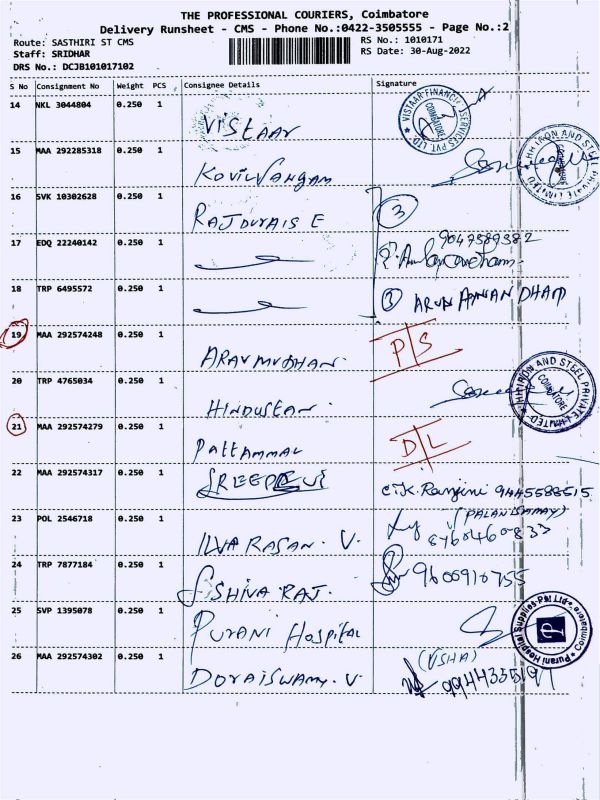 THE PROFESSIONAL COURIERS, Coimbatore
Delivery Runsheet - CMS - Phone No.:0422-3505555 - Page No.:2
Route: SASTHIRI ST CMS RS No.: 1010171
Staff: SRIDHAR RS Date: 30-Aug-2022
DRS No.: DCJB101017102
S No Consignment No Weight PCS Consignee Details Signature
14 NKL 3044804 0.250 1 VISTAAR
VISTAAR FINANCIAL SERVICES PVT. LTD. COIMBATORE
15 MAA 292285318 0.250 1 KOVILVANGAM
HI IRON AND STEEL PRIVATE LIMITED
16 SVK 10302628 0.250 1 RAJDURAIS E 3
17 EDQ 22240142 0.250 1 9047589382
18 TRP 6495572 0.250 1 3 ARUN ANAN DHAM
19 MAA 292574248 0.250 1 ARAVMUDHAN. P/S
20 TRP 4765034 0.250 1 HINDUSTAN.
HI IRON AND STEEL PRIVATE LIMITED COIMBATORE
21 MAA 292574279 0.250 1 PATTAMMAL D/L
22 MAA 292574317 0.250 1 C.K. Ranjini 9445588515
23 POL 2546718 0.250 1 ILVARASAN. V. (PALANISAMAY)
24 TRP 7877184 0.250 1 S. SHIVA RAJ. 9600910755
25 SVP 1395078 0.250 1 PURANI HOSPITAL
Purani Hospital Supplies Pvt Ltd. Coimbatore P
26 MAA 292574302 0.250 1 DORAISWAMY. V. (USHA)